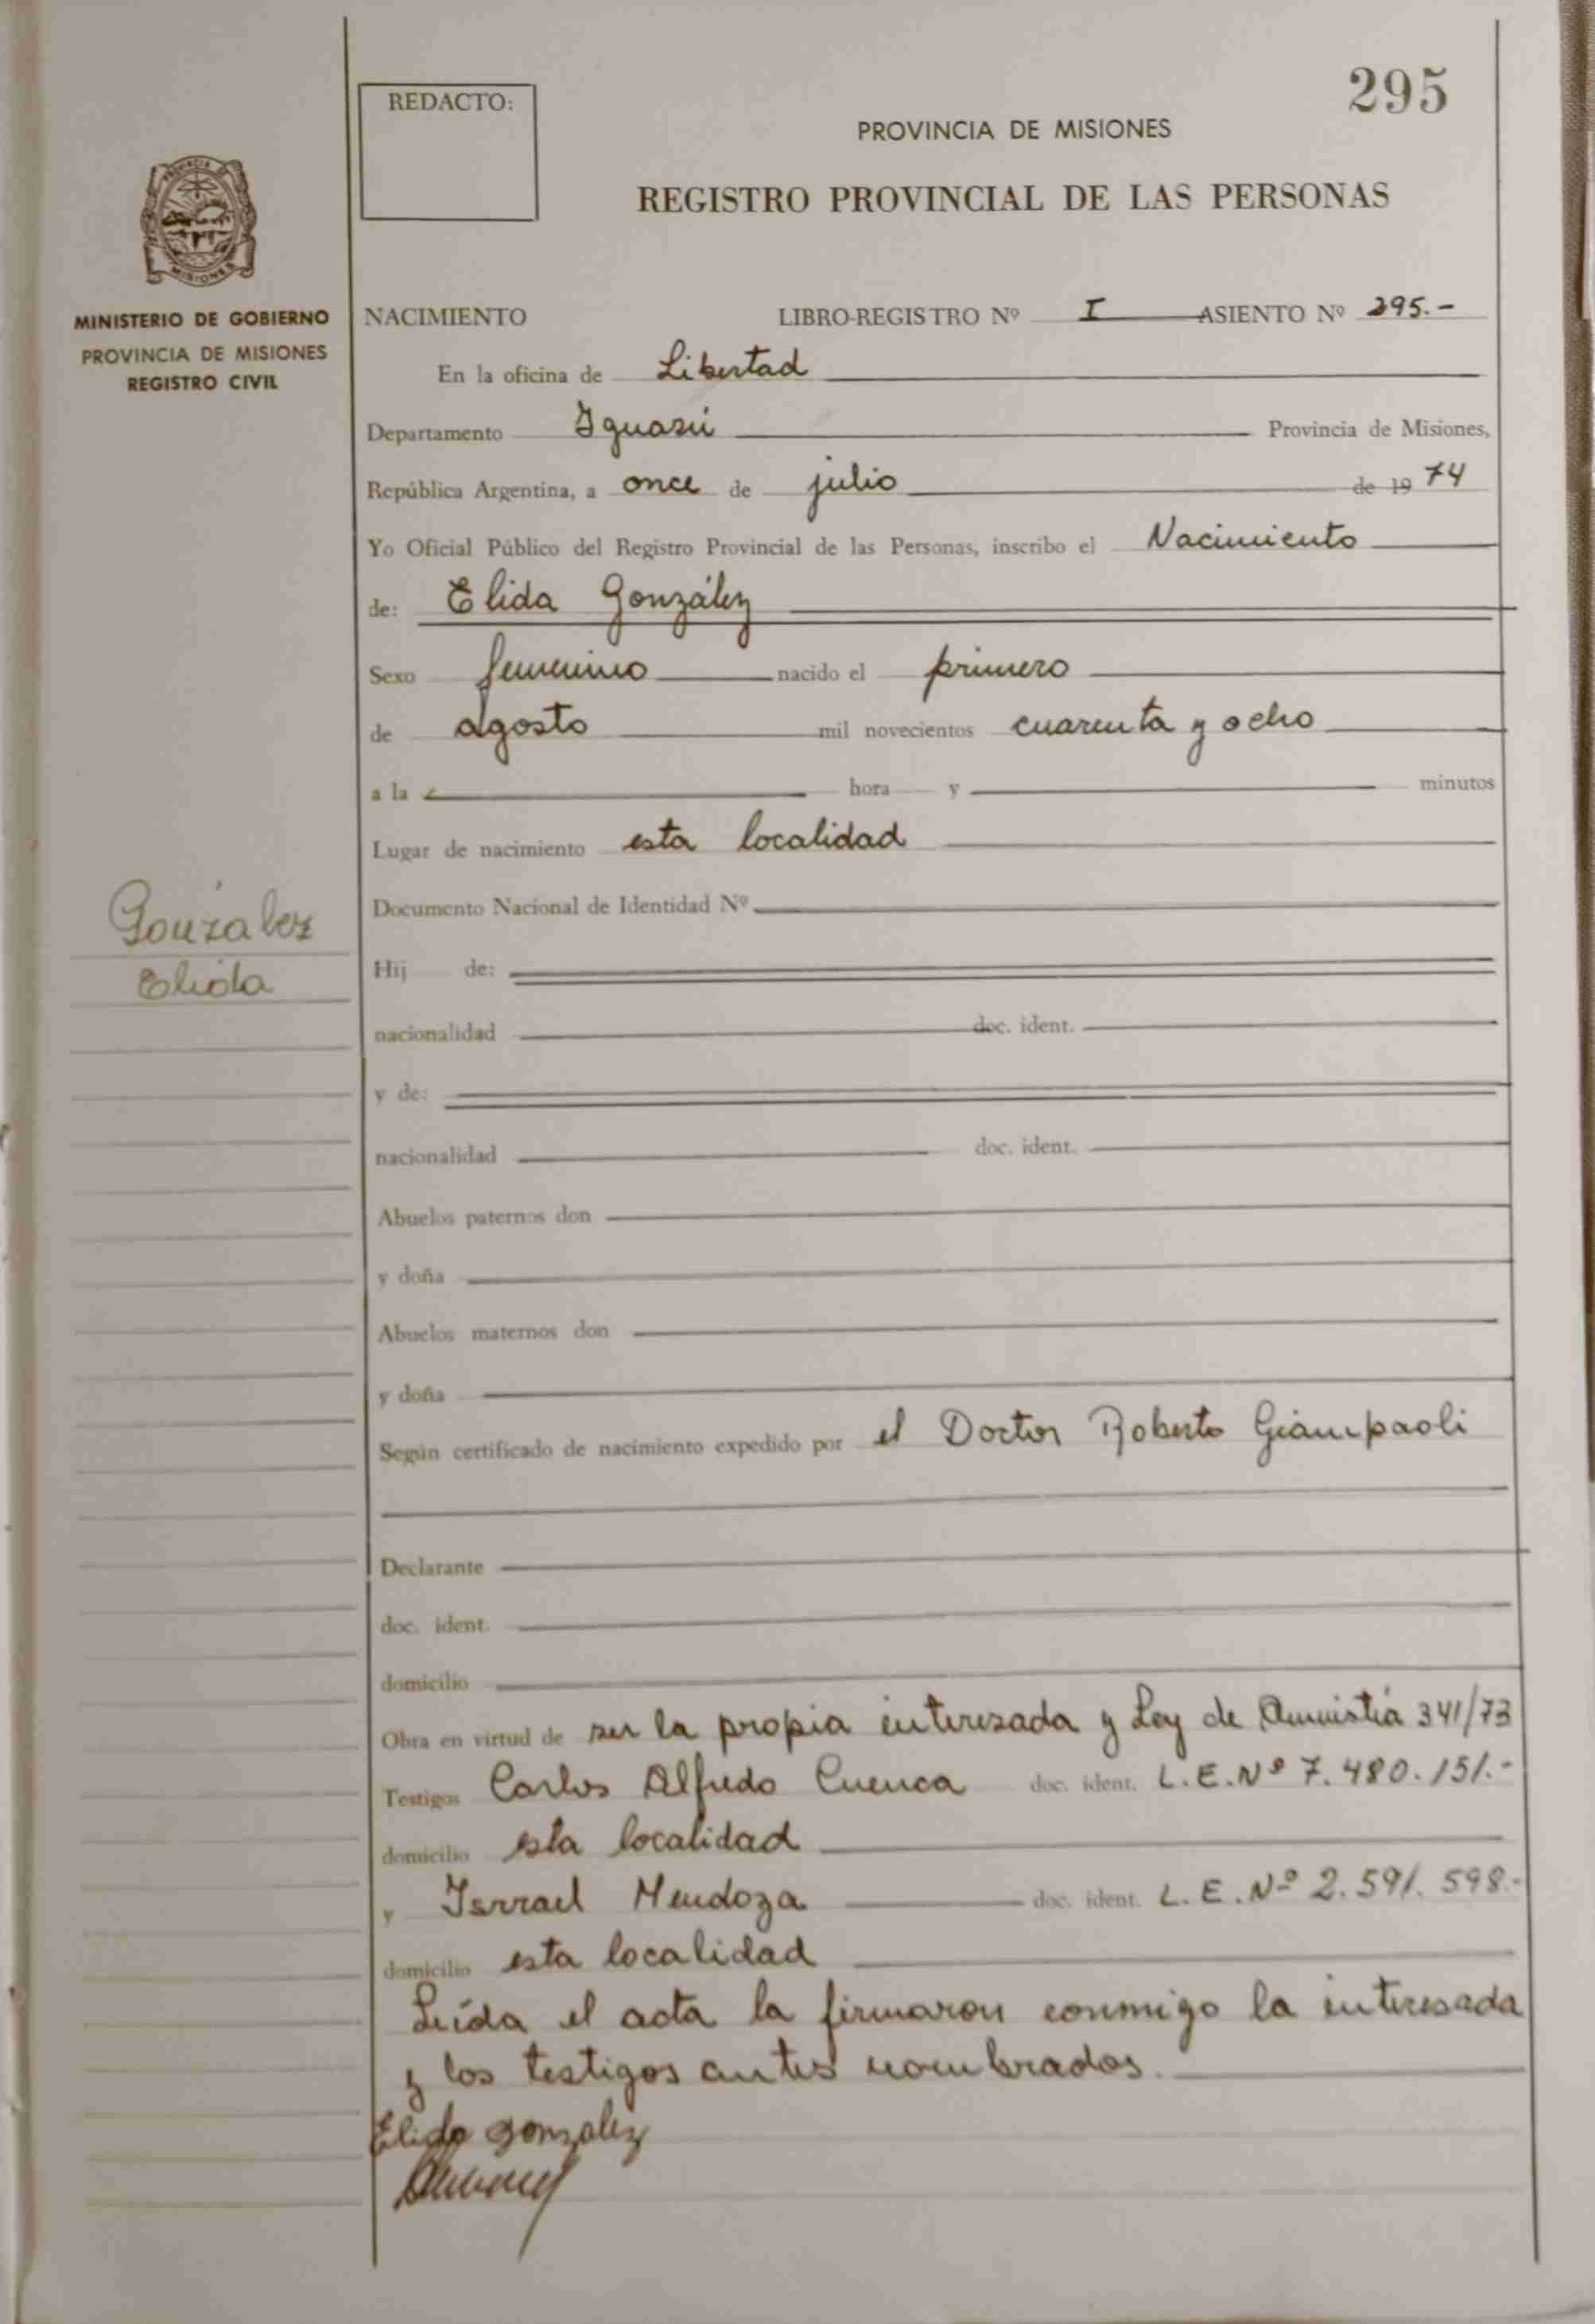 295
REDACTO:
PROVINCIA DE MISIONES
REGISTRO PROVINCIAL DE LAS PERSONAS
PROVINCIA
MISIONES
MINISTERIO DE GOBIERNO
PROVINCIA DE MISIONES
REGISTRO CIVIL
NACIMIENTO LIBRO-REGISTRO Nº I ASIENTO Nº 295.-
En la oficina de Libertad
Departamento Iguazú Provincia de Misiones,
República Argentina, a once de julio de 1974
Yo Oficial Público del Registro Provincial de las Personas, inscribo el Nacimiento
de: Elida González
Sexo femenino nacido el primero
de agosto mil novecientos cuarenta y ocho
a la hora y minutos
Lugar de nacimiento esta localidad
Documento Nacional de Identidad Nº
Gonzalez
Elida
Hij de:
nacionalidad doc. ident.
y de:
nacionalidad doc. ident.
Abuelos paternos don
y doña
Abuelos maternos don
y doña
Según certificado de nacimiento expedido por el Doctor Roberto Giampaoli
Declarante
doc. ident.
domicilio
Obra en virtud de ser la propia interesada y Ley de Amnistía 341/73
Testigos Carlos Alfredo Cuenca doc. ident. L.E.Nº 7.480.151.-
domicilio esta localidad
y Isrrael Mendoza doc. ident. L.E.Nº 2.591.598.-
domicilio esta localidad
Leída el acta la firmaron conmigo la interesada
y los testigos antes nombrados.
Elida gonzalez